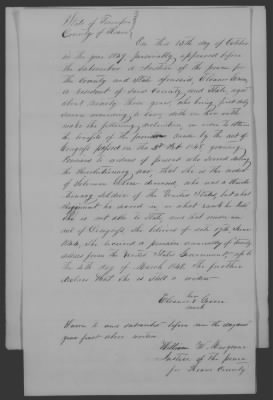 State of Tennessee
County of Roane
On this 15th day of October
in the year 1849 Personally appeared before
the subscriber a Justice of the peace for
the County and State aforesaid, Eleanor
a resident of said County and State, aged
about ninety three years, who being first duly
sworn according to law, doth on her oath
make the following declaration, in order to obtain
the benefits of the provision made by the act of
Congress passed on the 2nd Feb 1848 granting
Pensions to widows of persons who served during
the Revolutionary war, that she is the widow
of Solomon deceased, who was a
soldier of the United States, but what
Regiment he served in or what rank he held
she is not able to State, and that under an
act of Congress she believes of 17th June
1844, she received a pension annually of twenty
dollars from the United States Government up to
the 4th day of March 1848. She further
declares that she is still a widow
her
Eleanor X
mark
Sworn to and subscribed before me the day and
year first above written
William W.
Justice of the peace
for Roane County